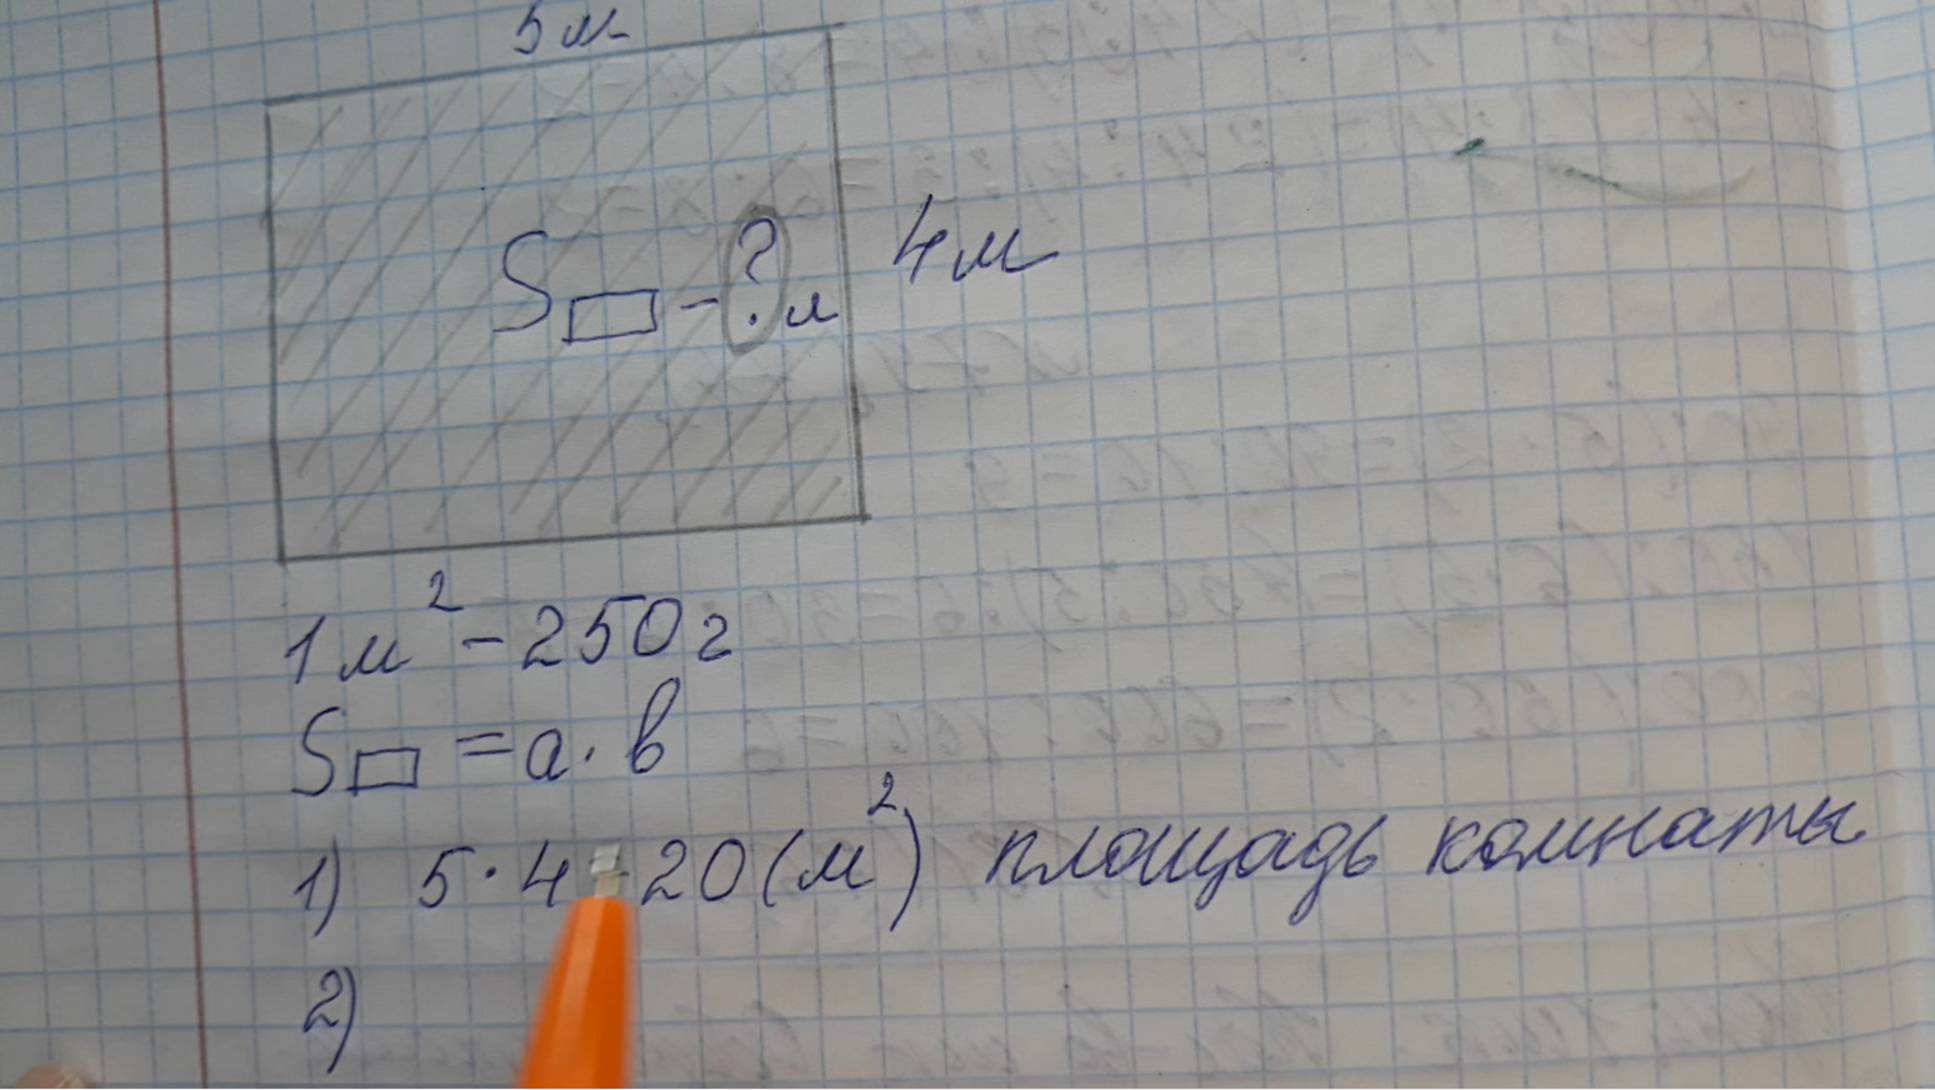 5 м
S▭ - ? м
4 м
1 м² - 250 г
S▭ = a · b
1) 5 · 4 = 20 (м²) площадь комнаты
2)